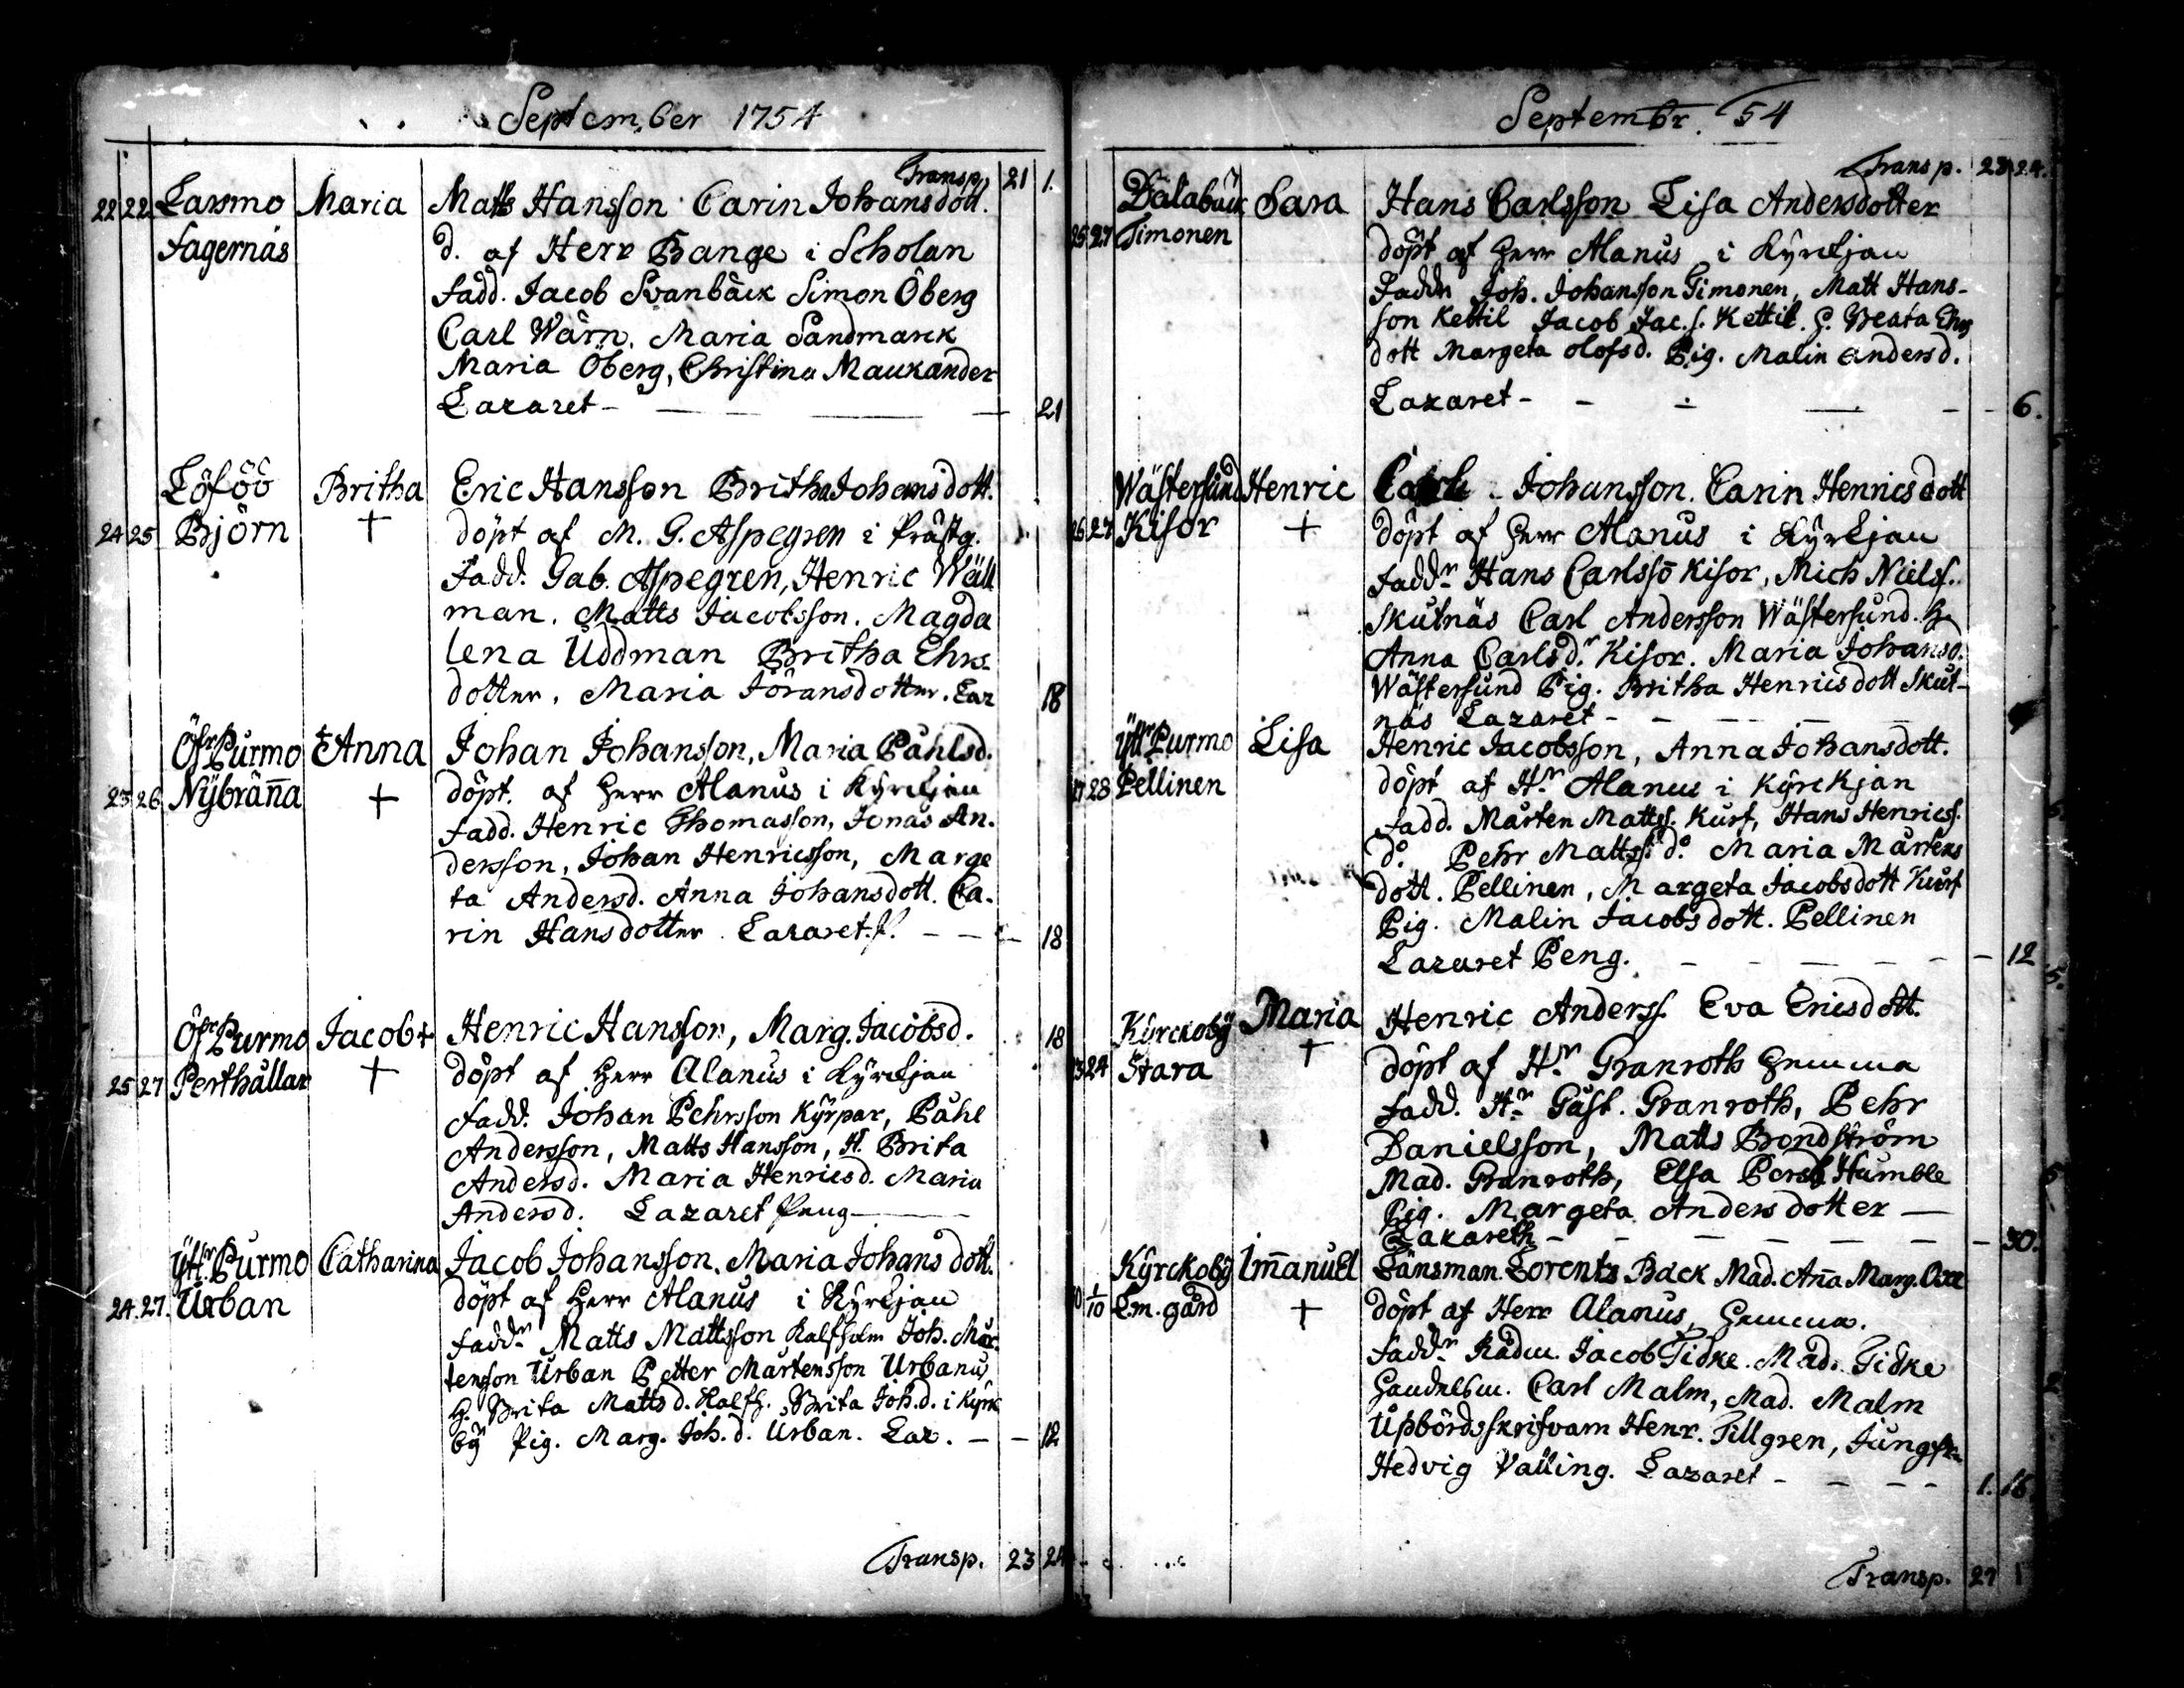 September 1754
Transp. 21 1.
22 22 Larsmo Maria Matts Hansson Carin Johansdott.
Fagernäs d. af Herr Bange i Scholan
Fadd. Jacob Svanbäck Simon Öberg
Carl Wärn. Maria Sandmarck
Maria Öberg, Christina Maukander
Lazaret - 21
Löföö Britha Eric Hansson Britha Johansdott.
24 25 Björn + döpt af M. G. Aspegren i Prästg.
Fadd. Gab. Aspegren, Henric Wäll
man. Matts Jacobsson. Magda
lena Uddman Britha Ehrs
dotter, Maria Jöransdotter. Laz 18
Öfr Purmo Anna Johan Johansson, Maria Påhlsd.
23 26 Nybränna + döpt. af Herr Alanus i Kyrckjan
Fadd. Henric Thomasson, Jonas An.
dersson, Johan Henricsson, Marge
ta Andersd. Anna Johansdott. Ca.
rin Hansdotter. Lazaret. - - 18
Öfr Purmo Jacob + Henric Hansson, Marg. Jacobsd. 18
25 27 Perthållar + döpt af Herr Alanus i Kyrckjan
Fadd. Johan Pehrsson Kyrpar, Påhl
Andersson, Matts Hansson, H. Brita
Andersd. Maria Henricsd. Maria
Andersd. Lazaret Peng
Ytt. Purmo Catharina Jacob Johansson. Maria Johansdott.
24. 27. Urban döpt af Herr Alanus i Kyrckjan
Faddr Matts Mattsson Kalfholm Joh. Mår
tenson Urban Petter Mårtensson Urbanus
H. Brita Matts d. Kalfh. Brita Joh.d. i Kyrk
by Pig. Marg. Joh. d. Urban. Laz. - - 12
Transp. 23 24
Septembr. 54
Transp. 23 24.
Dalabäck Sara Hans Carlsson Lisa Andersdotter
25 27 Timonen döpt af Herr Alanus i Kyrckjan
Faddr Joh. Johansson Timonen, Matt Hans-
son Kettil Jacob Jac. s. Kettil. H. Beata Ehrs
dott Margeta Olofsd. Pig. Malin Andersd.
Lazaret - - - 6.
Wästersund Henric Johansson. Carin Henricsdott
26 27 Kisor + döpt af Herr Alanus i Kyrckjan
Faddr Hans Carlssō Kisor, Mich Nielss.
Skutnäs Carl Andersson Wästersund. H.
Anna Carlsdr Kisor. Maria Johansd.
Wästersund Pig. Britha Henricsdott Skut-
näs Lazaret - - -
Yttr Purmo Lisa Henric Jacobsson, Anna Johansdott.
27 28 Pellinen döpt af Hr Alanus i Kyrckjan
Fadd. Mårten Mattss. Kurf, Hans Henricss.
do Pehr Mattss. do Maria Mårtens
dott. Pellinen, Margeta Jacobsdott Kurf
Pig. Malin Jacobsdott. Pellinen
Lazaret Peng. - - - 12
Kyrckoby Maria Henric Anderss. Eva Ericsdott.
24 Stara + döpt af Hr Granroth Hemma
Fadd. Hr Gust. Granroth, Pehr
Danielsson, Matts Brondström
Mad. Granroth, Elsa Persd. Humble
Pig. Margeta Andersdotter
Lazareth - - - 30.
Kyrckoby Immanuel Länsman. Lorentz Back Mad. Anna Marg.
1/10 Lm. gård + döpt af Herr Alanus, Hemma.
Faddr Rådm. Jacob Tidke. Mad. Tidke
Handelsm. Carl Malm, Mad. Malm
Upbördsskrifvarn Henr. Tillgren, Jungfr.
Hedvig Valling. Lazaret - - - 1. 16.
Transp. 27 1